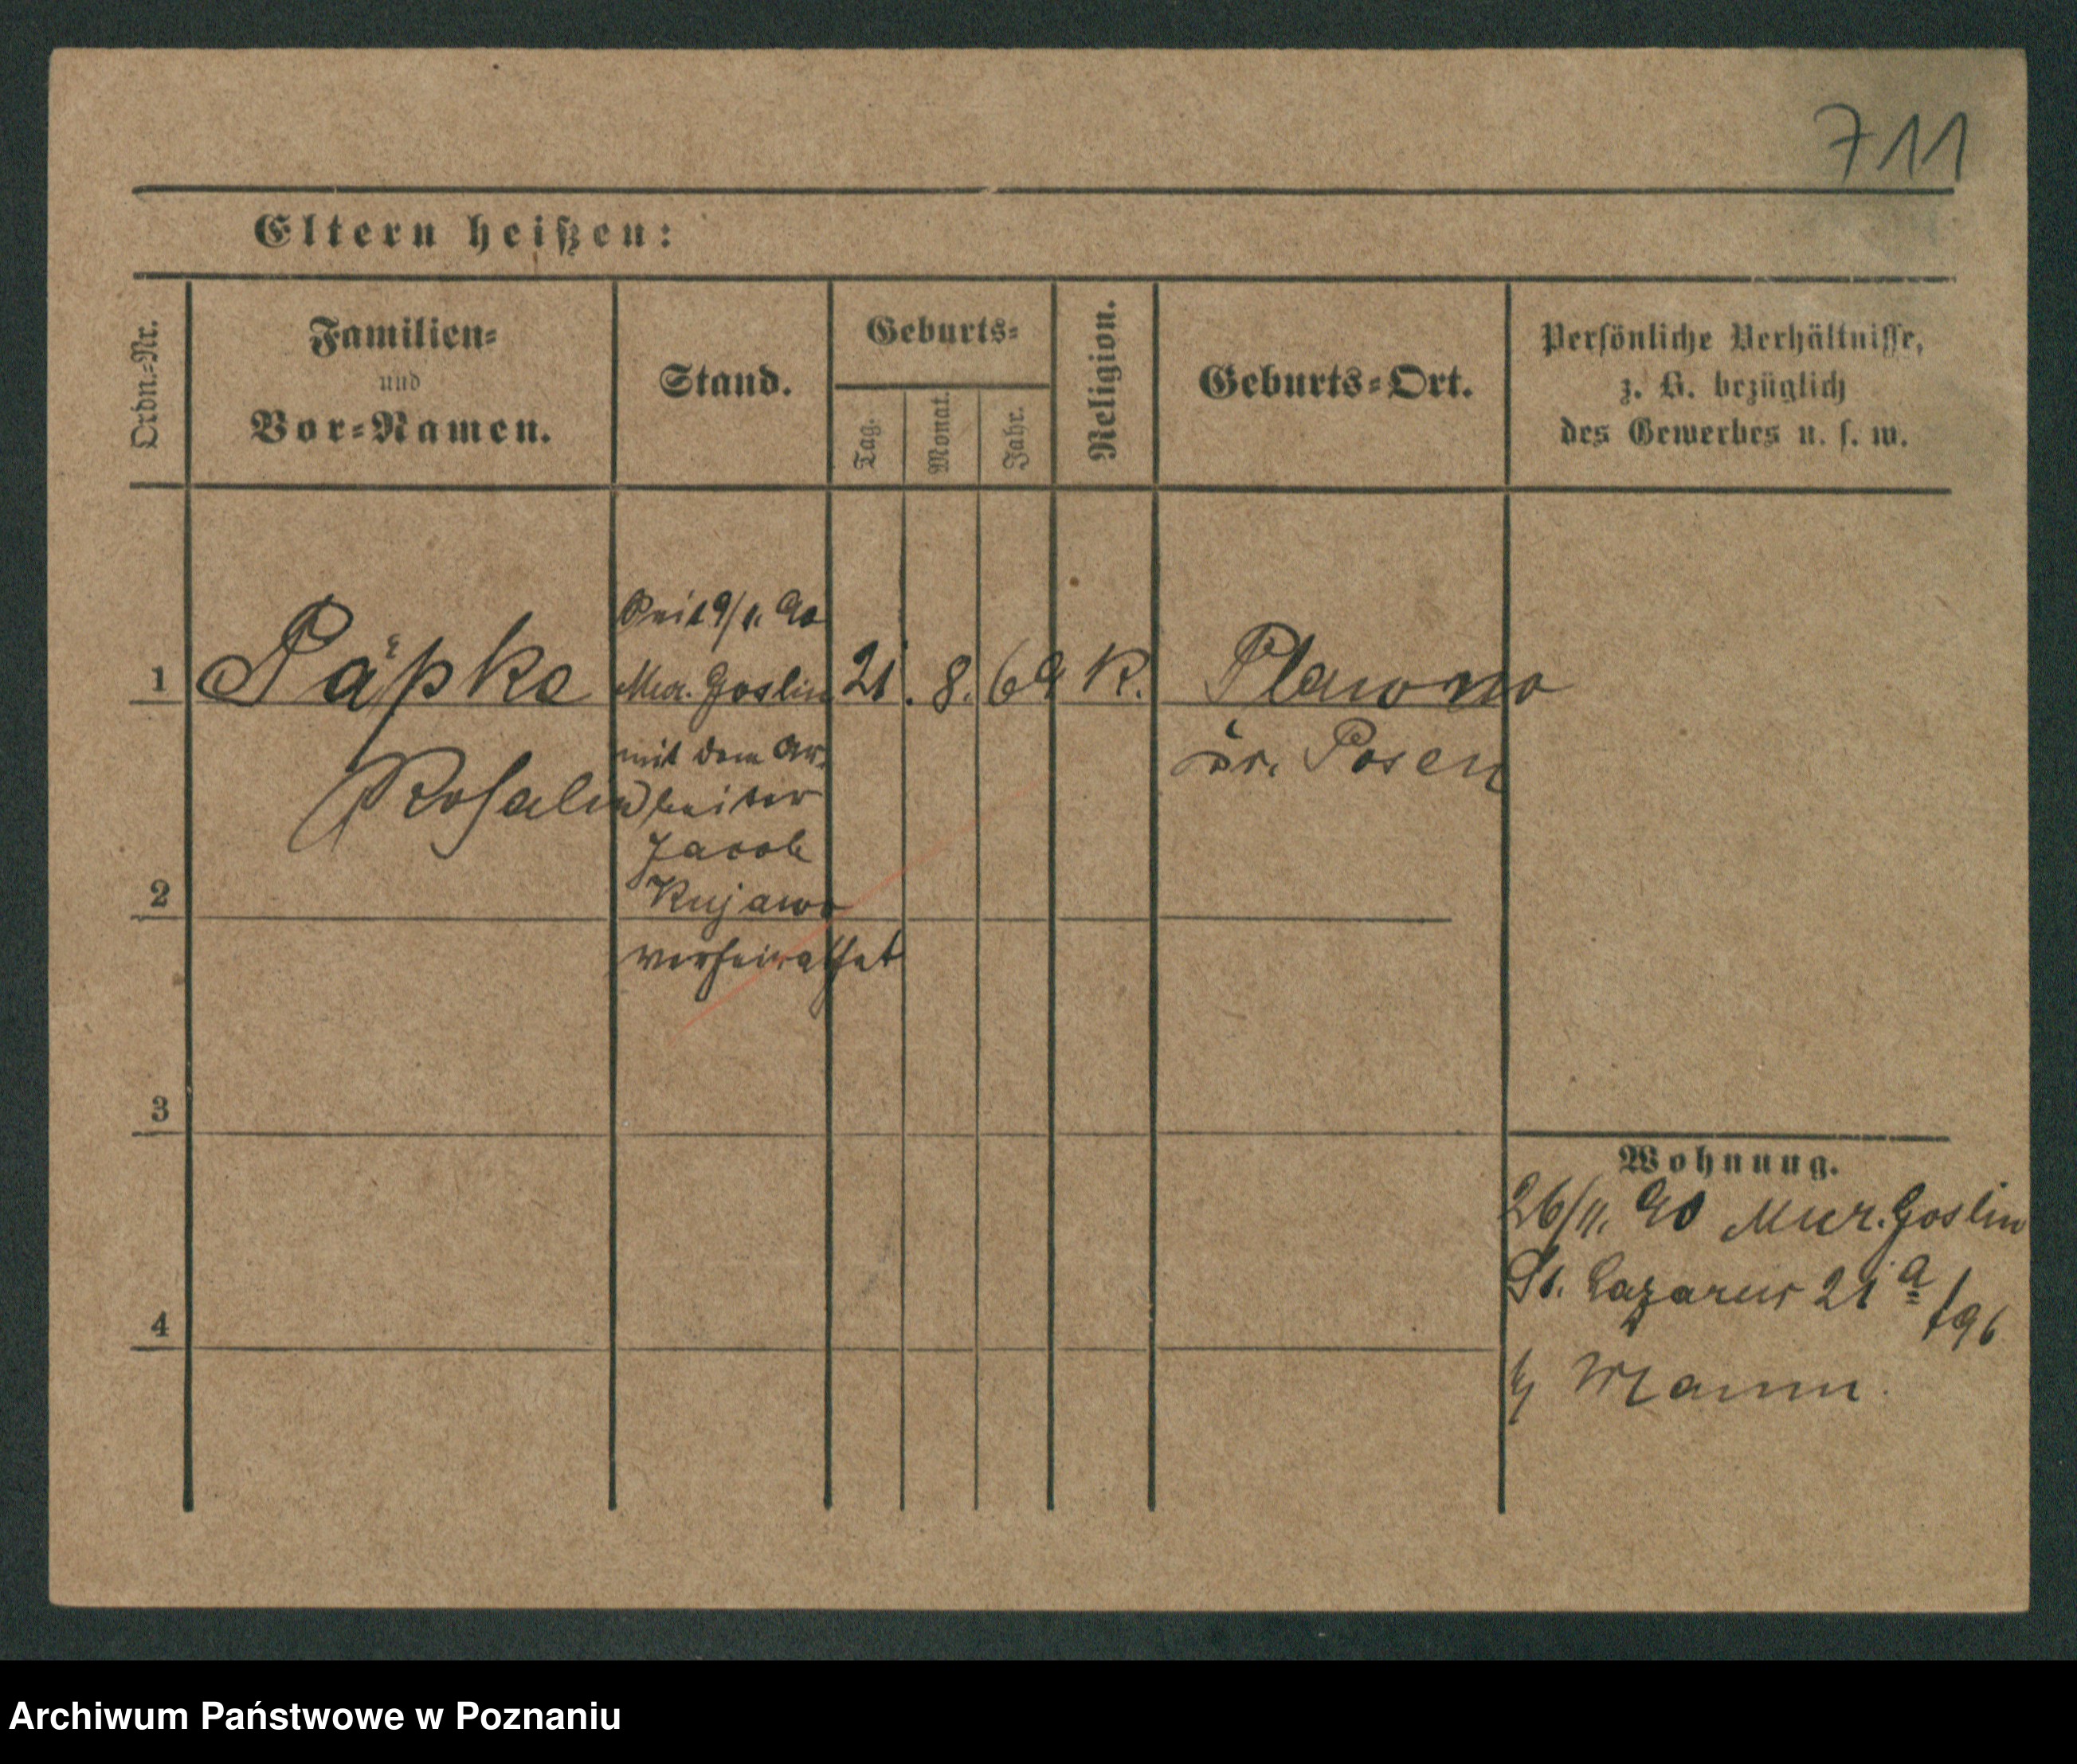 711
Eltern heißen:
Ordn.-Nr.
Familien-
und
Vor-Namen.
Stand.
Geburts-
Tag.
Monat.
Jahr.
Religion.
Geburts-Ort.
Persönliche Verhältnisse,
z. B. bezüglich
des Gewerbes u. s. w.
1
Päpke
Rosalie
Seit 9/11. 90
Mur. Goslin
mit dem Ar-
beiter
Jacob
Kujawa
verheirathet
21. 8. 69
K.
Plawno
Kr. Posen
2
3
4
Wohnung.
26/11. 90 Mur. Goslin
St. Lazarus 21 a /96
Mann.
Archiwum Państwowe w Poznaniu